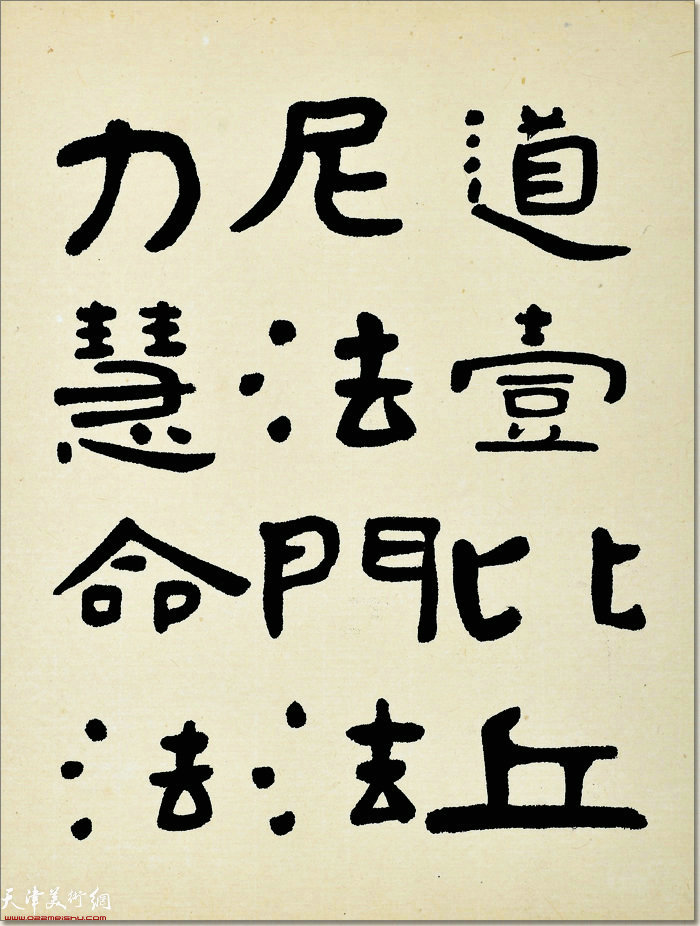 道壹比丘
尼法門法
力慧命法
天津美術網
www.022meishu.com